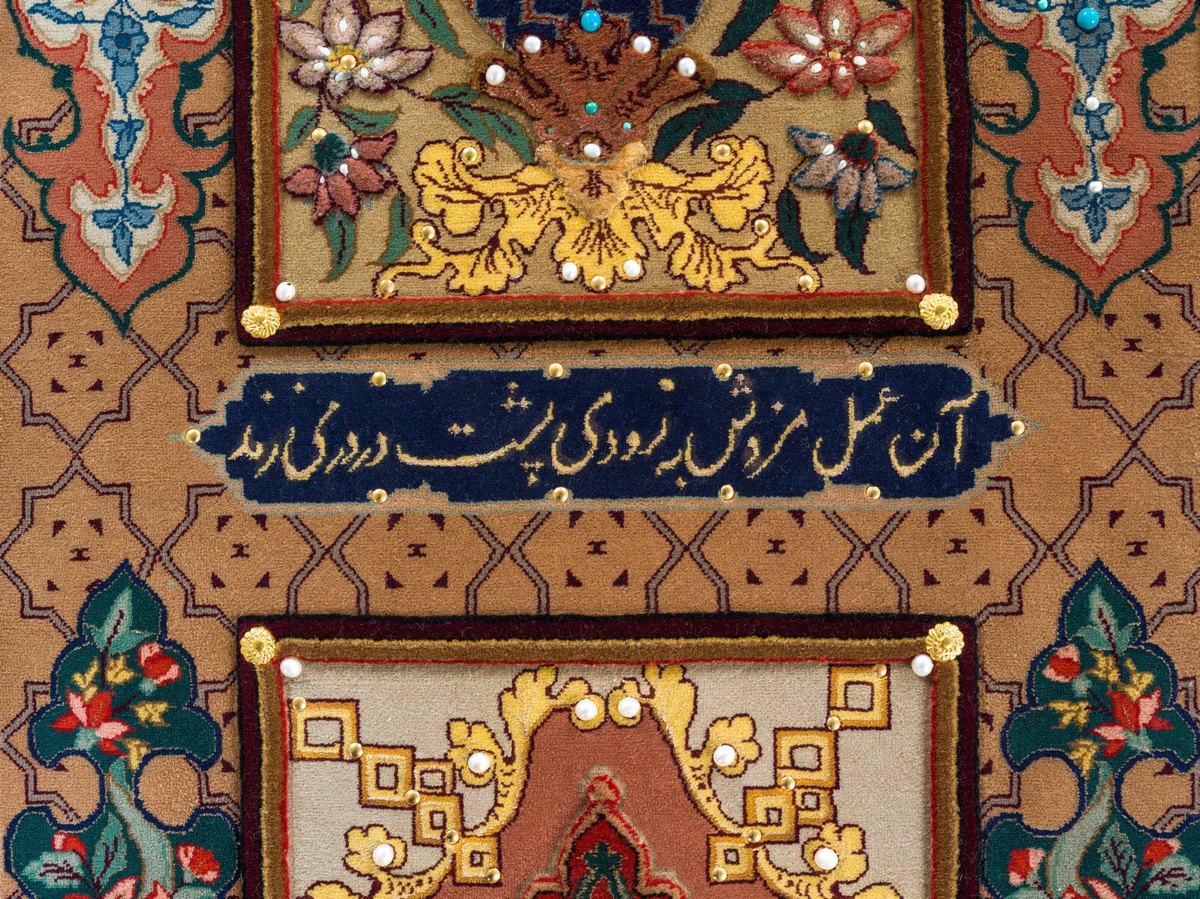 آن عمل مزدش به زودی پشت در در می زند